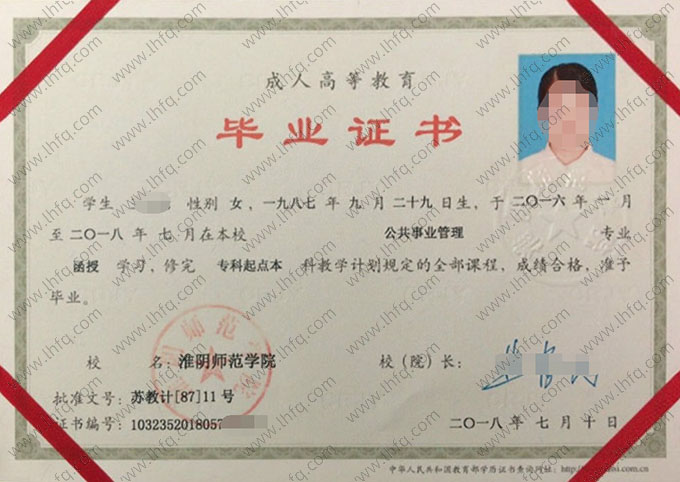 成人高等教育
毕业证书
学生 性别 女，一九八七年 九 月 二十九日生，于二〇一六年 一 月
至二〇一八年 七 月在本校 公共事业管理 专业
函授 学习，修完 专科起点本 科教学计划规定的全部课程，成绩合格，准予
毕业。
校 名：淮阴师范学院 校（院）长：
批准文号：苏教计[87]11 号
证书编号：1032352018057 二〇一八年 七 月 十 日
中华人民共和国教育部学历证书查询网址：
www.lhfq.com